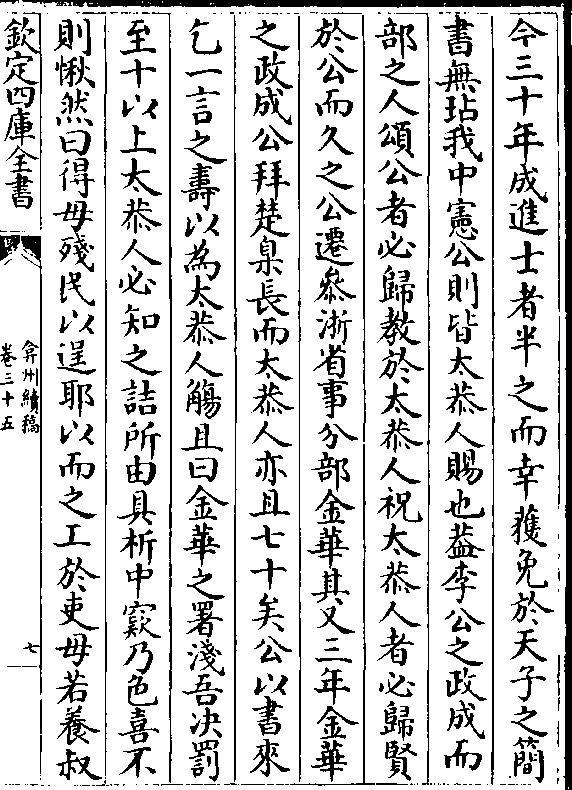 今三十年成進士者半之而幸獲免於天子之簡
書無玷我中憲公則皆太恭人賜也葢李公之政成而
部之人頌公者必歸教於太恭人祝太恭人者必歸賢
於公而久之公遷參浙省事分部金華其又三年金華
之政成公拜楚臬長而太恭人亦且七十矣公以書來
乞一言之壽以為太恭人觴且曰金華之署淺吾决罰
至十以上太恭人必知之詰所由具析中窾乃色喜不
則愀然曰得毋殘民以逞耶以而之工於吏毋若養叔
欽定四庫全書
弇州續稿
卷三十五
七